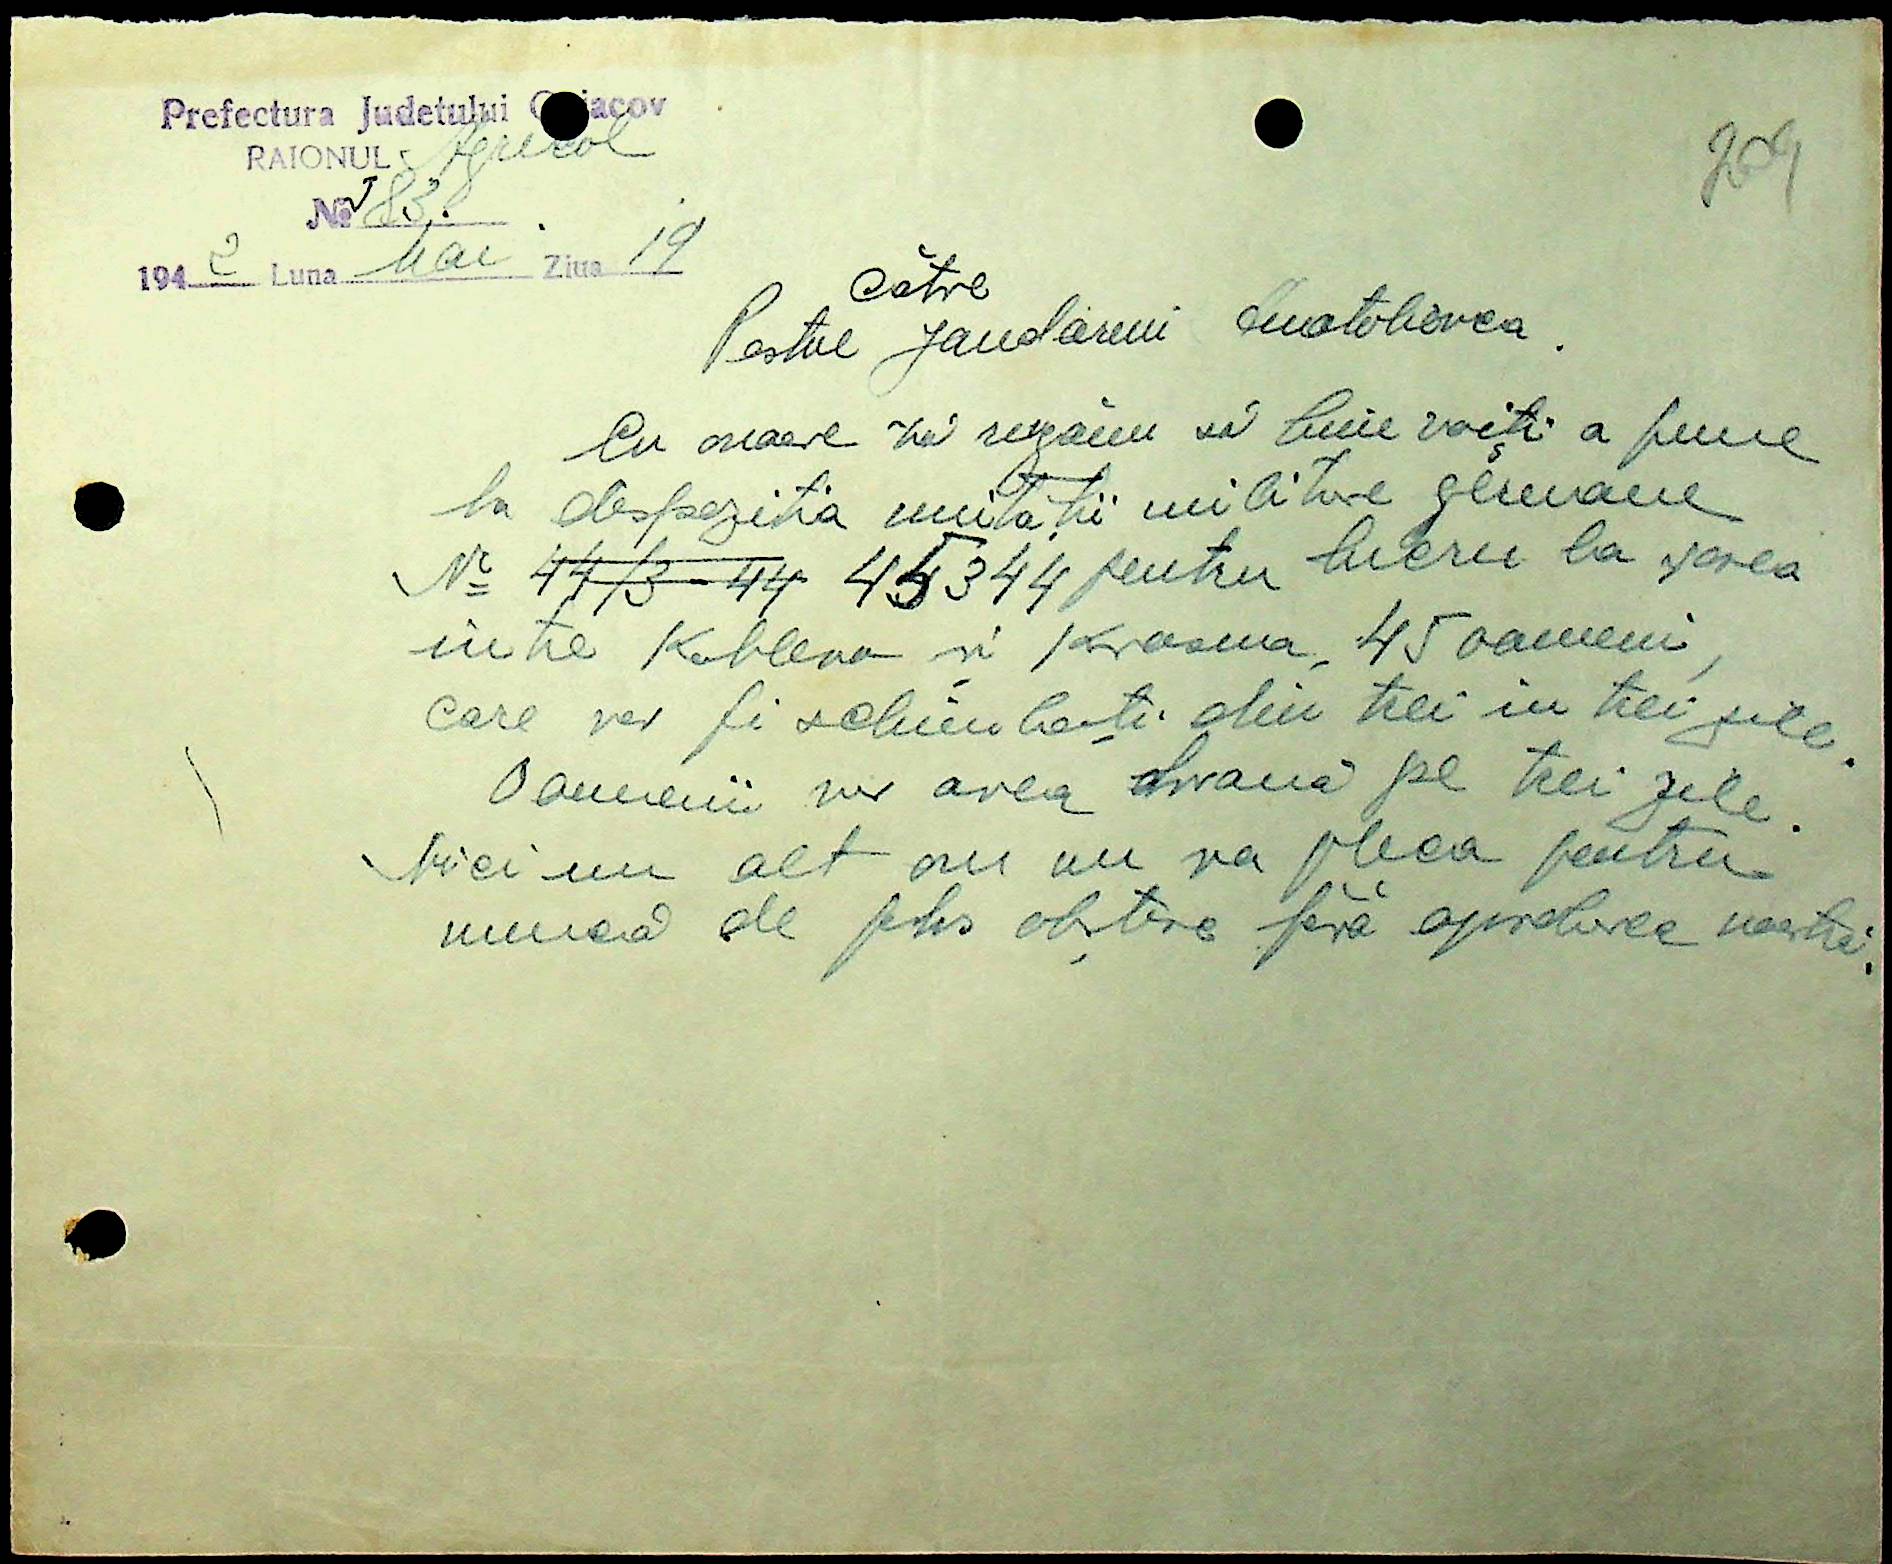 Prefectura Judetului O iacov
RAIONUL Agricol
209
№ 83.
1942 Luna Mai Ziua 19
Către
Postul Jandarmi Anatolievca.
Cu onoare vă rugăm să bine voiți a pune
la despoziția unității militare germane
Nr 44/3-44 45344 pentru lucru la
intre Kobleva și Krasna, 45 oameni,
care vor fi schimbați din trei in trei zile.
Oamenii vor avea hrană pe trei zile.
Nici un alt om nu va pleca pentru
muncă de folos obștesc fără aprobarea noastră.